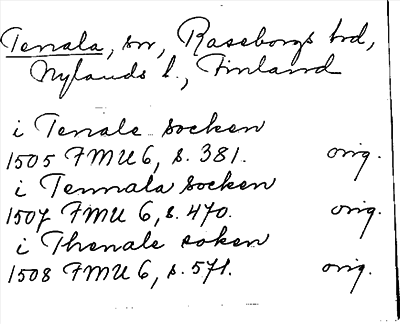 Tenala, sn, Raseborgs hd,
Nylands l., Finland
i Tenale socken
1505 FMU 6, s. 381. orig.
i Tennala socken
1507 FMU 6, s. 470. orig.
i Thenale soken
1508 FMU 6, s. 571. orig.